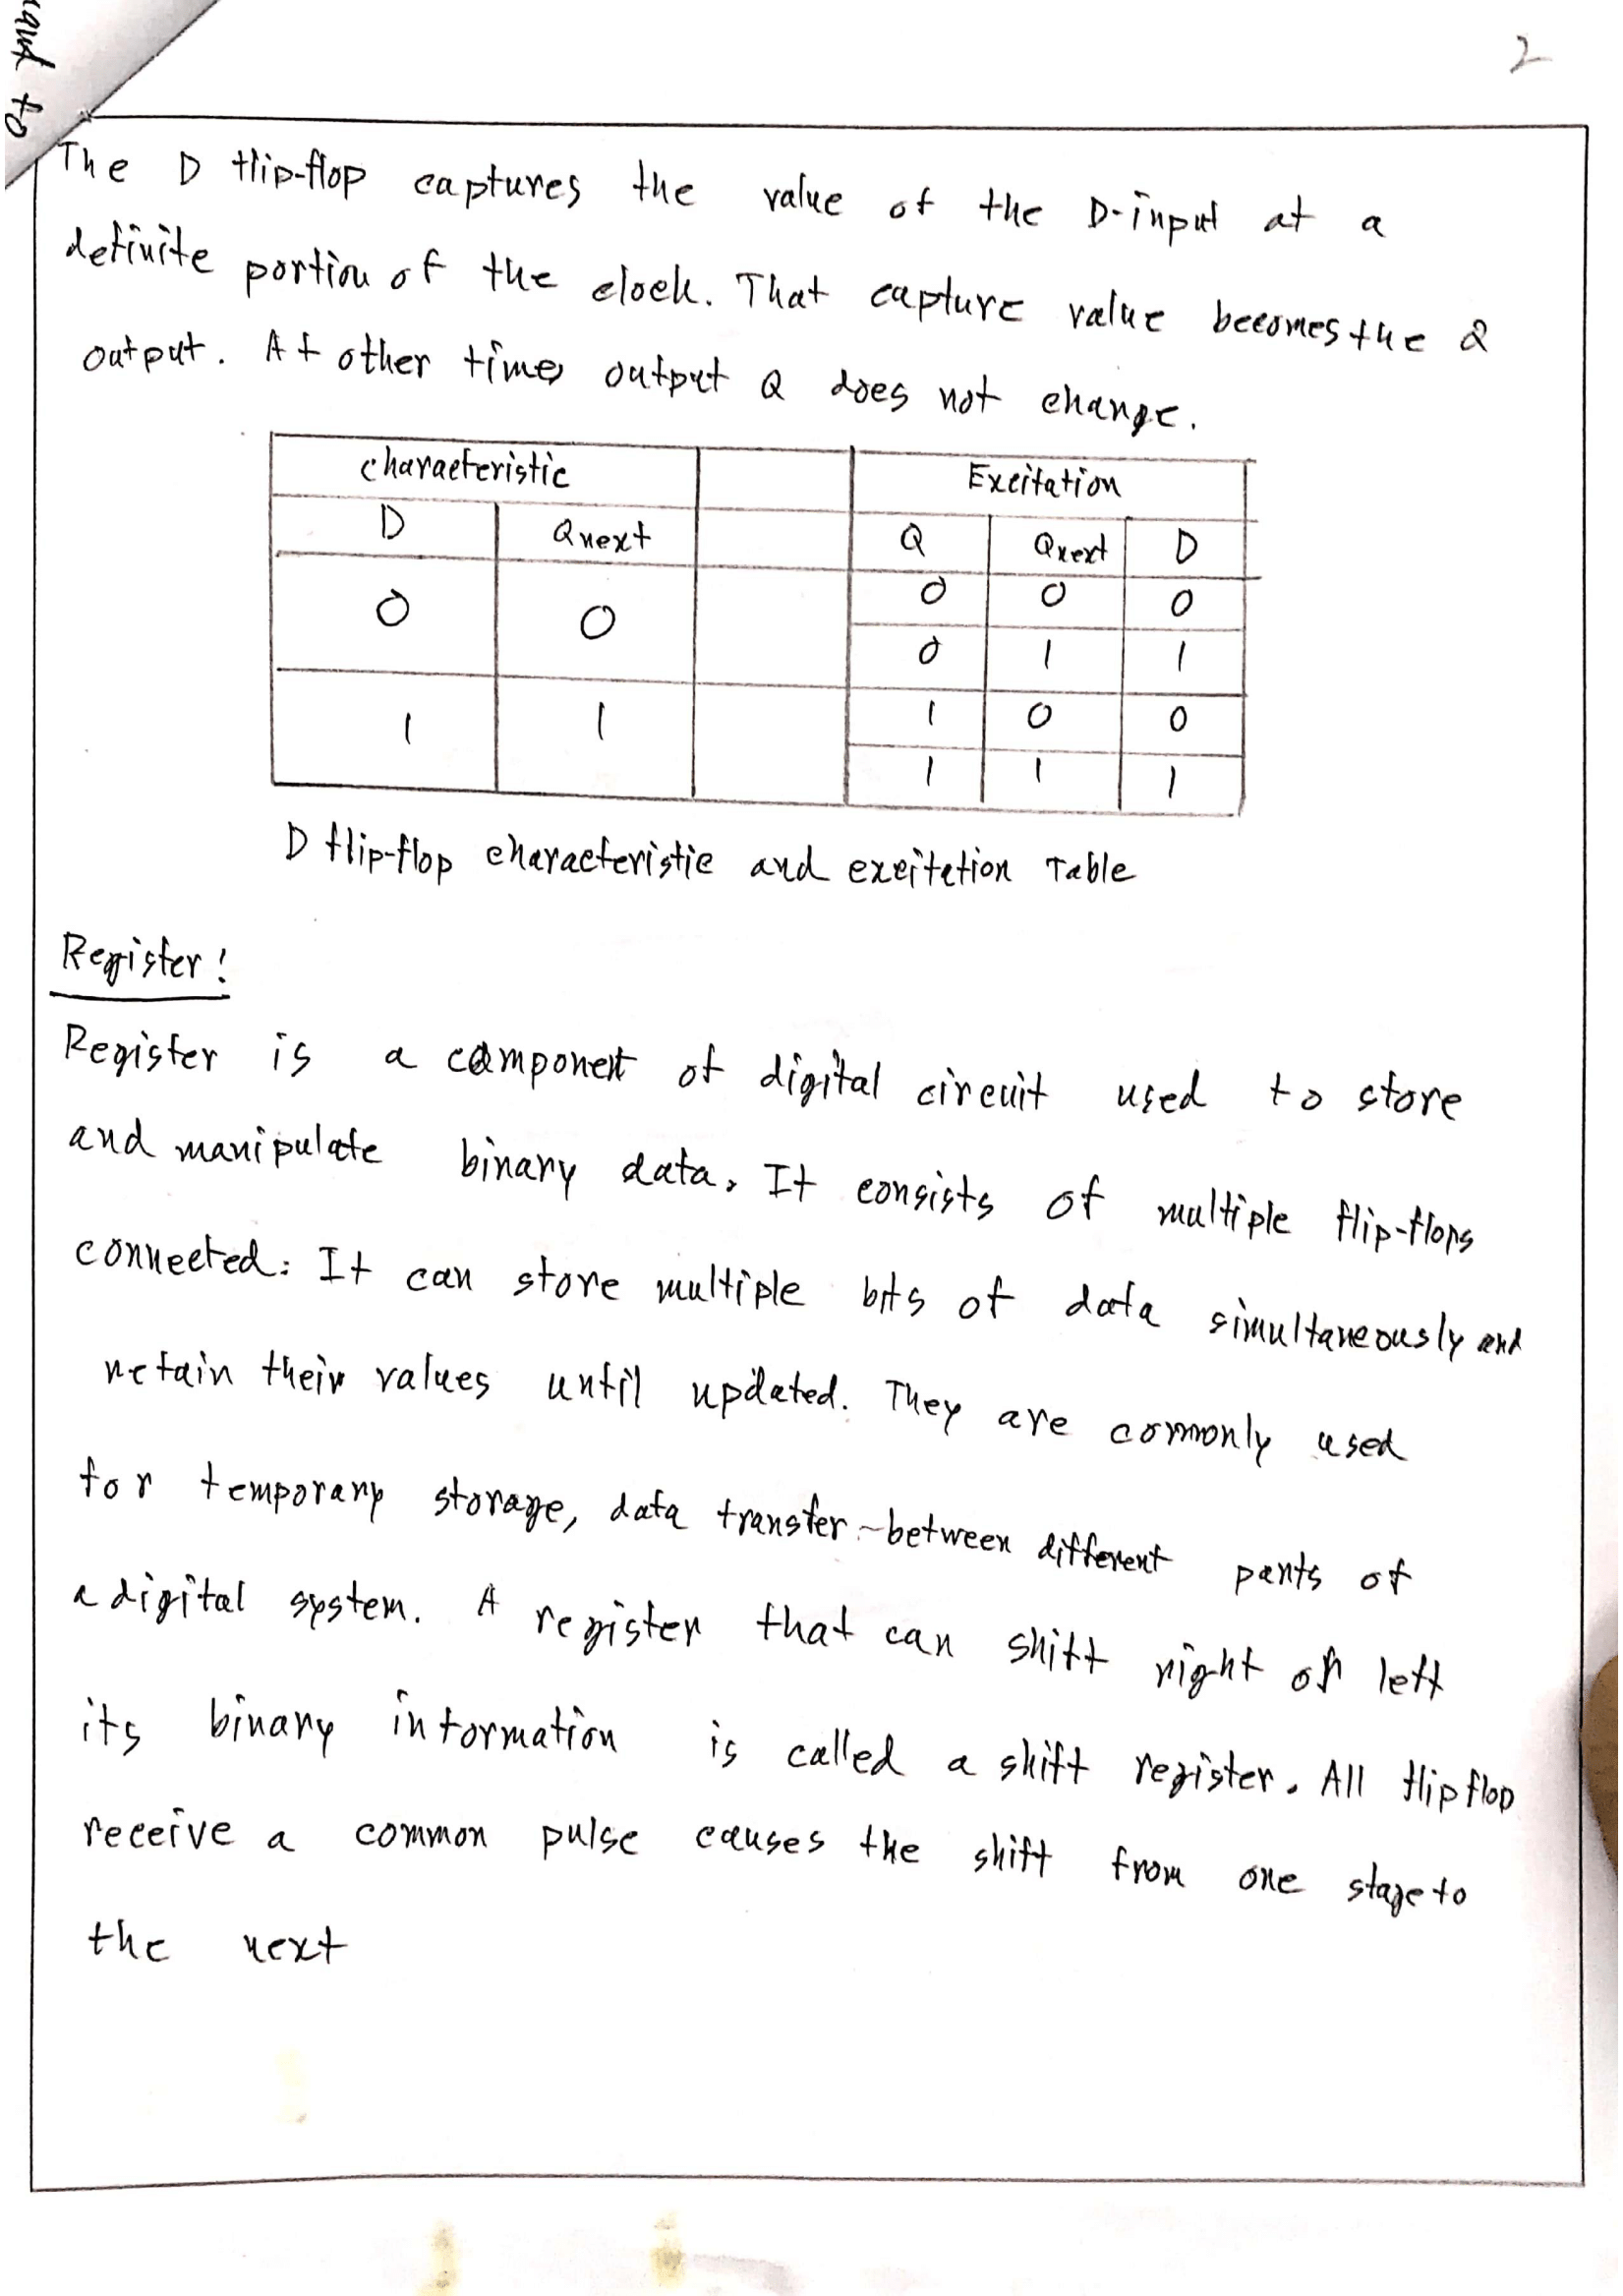 2
The D flip-flop captures the value of the D-input at a
definite portion of the clock. That capture value becomes the Q
output. At other times output Q does not change.
characteristic Excitation
D Qnext Q Qnext D
0 0 0 0 0
0 1 1
1 1 1 0 0
1 1 1
D flip-flop characteristic and excitation Table
Register:
Register is a component of digital circuit used to store
and manipulate binary data. It consists of multiple flip-flops
connected. It can store multiple bits of data simultaneously and
retain their values until updated. They are commonly used
for temporary storage, data transfer between different parts of
a digital system. A register that can shift right or left
its binary information is called a shift register. All flip flop
receive a common pulse causes the shift from one stage to
the next
to